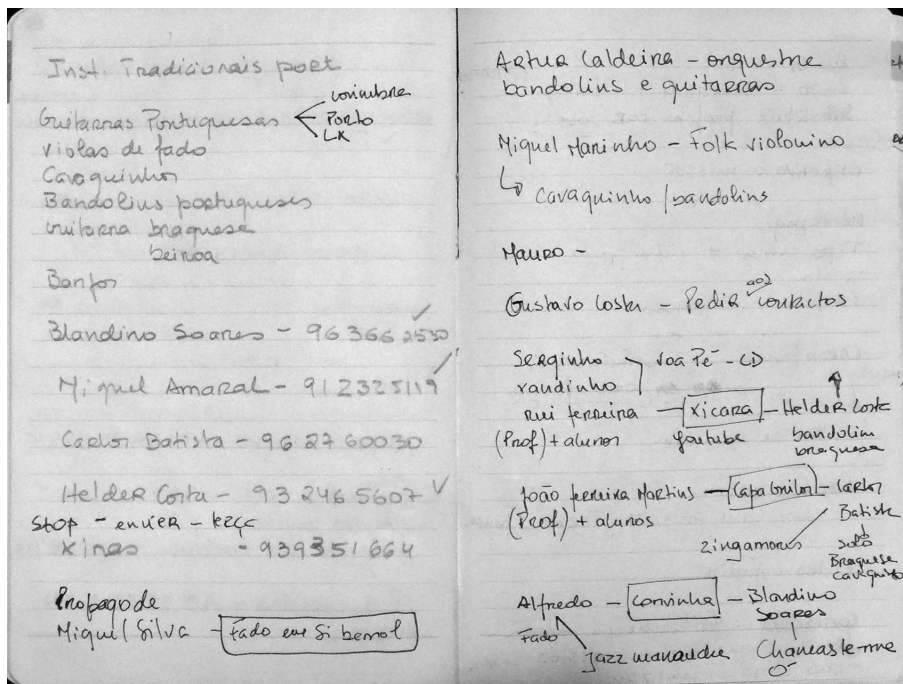 Inst. Tradicionais port
Guitarras Portuguesas
Coimbra
Porto
LX
violas de fado
Cavaquinhos
Bandolins portugueses
Guitarra braguesa
beiroa
Banjos
Blandino Soares - 963662530
Miguel Amaral - 912325119
Carlos Batista - 962760030
Helder Costa - 932465607
STOP - enviER - terça
Xinas - 939351664
Propagode
Miguel Silva - Fado em Si bemol
Artur Caldeira - orquestra
bandolins e guitarras
Miguel Maninho - Folk violonino
Cavaquinho / bandolins
Mauro -
Gustavo Costa - Pedir aos contactos
Serginho
Vandinho
roa Pé - CD
rui ferreira - Xicara - Helder Costa
(Prof) + alunos
youtube
bandolim
braguesa
João ferreira Martins - Capagrilos - Carlos
Batista
(Prof) + alunos
Zingamores
solo
Braguesa
Cavaquinho
Alfredo - Corvinha - Blandino
Soares
Fado
Jazz manouche
Chamaste-me
Ó